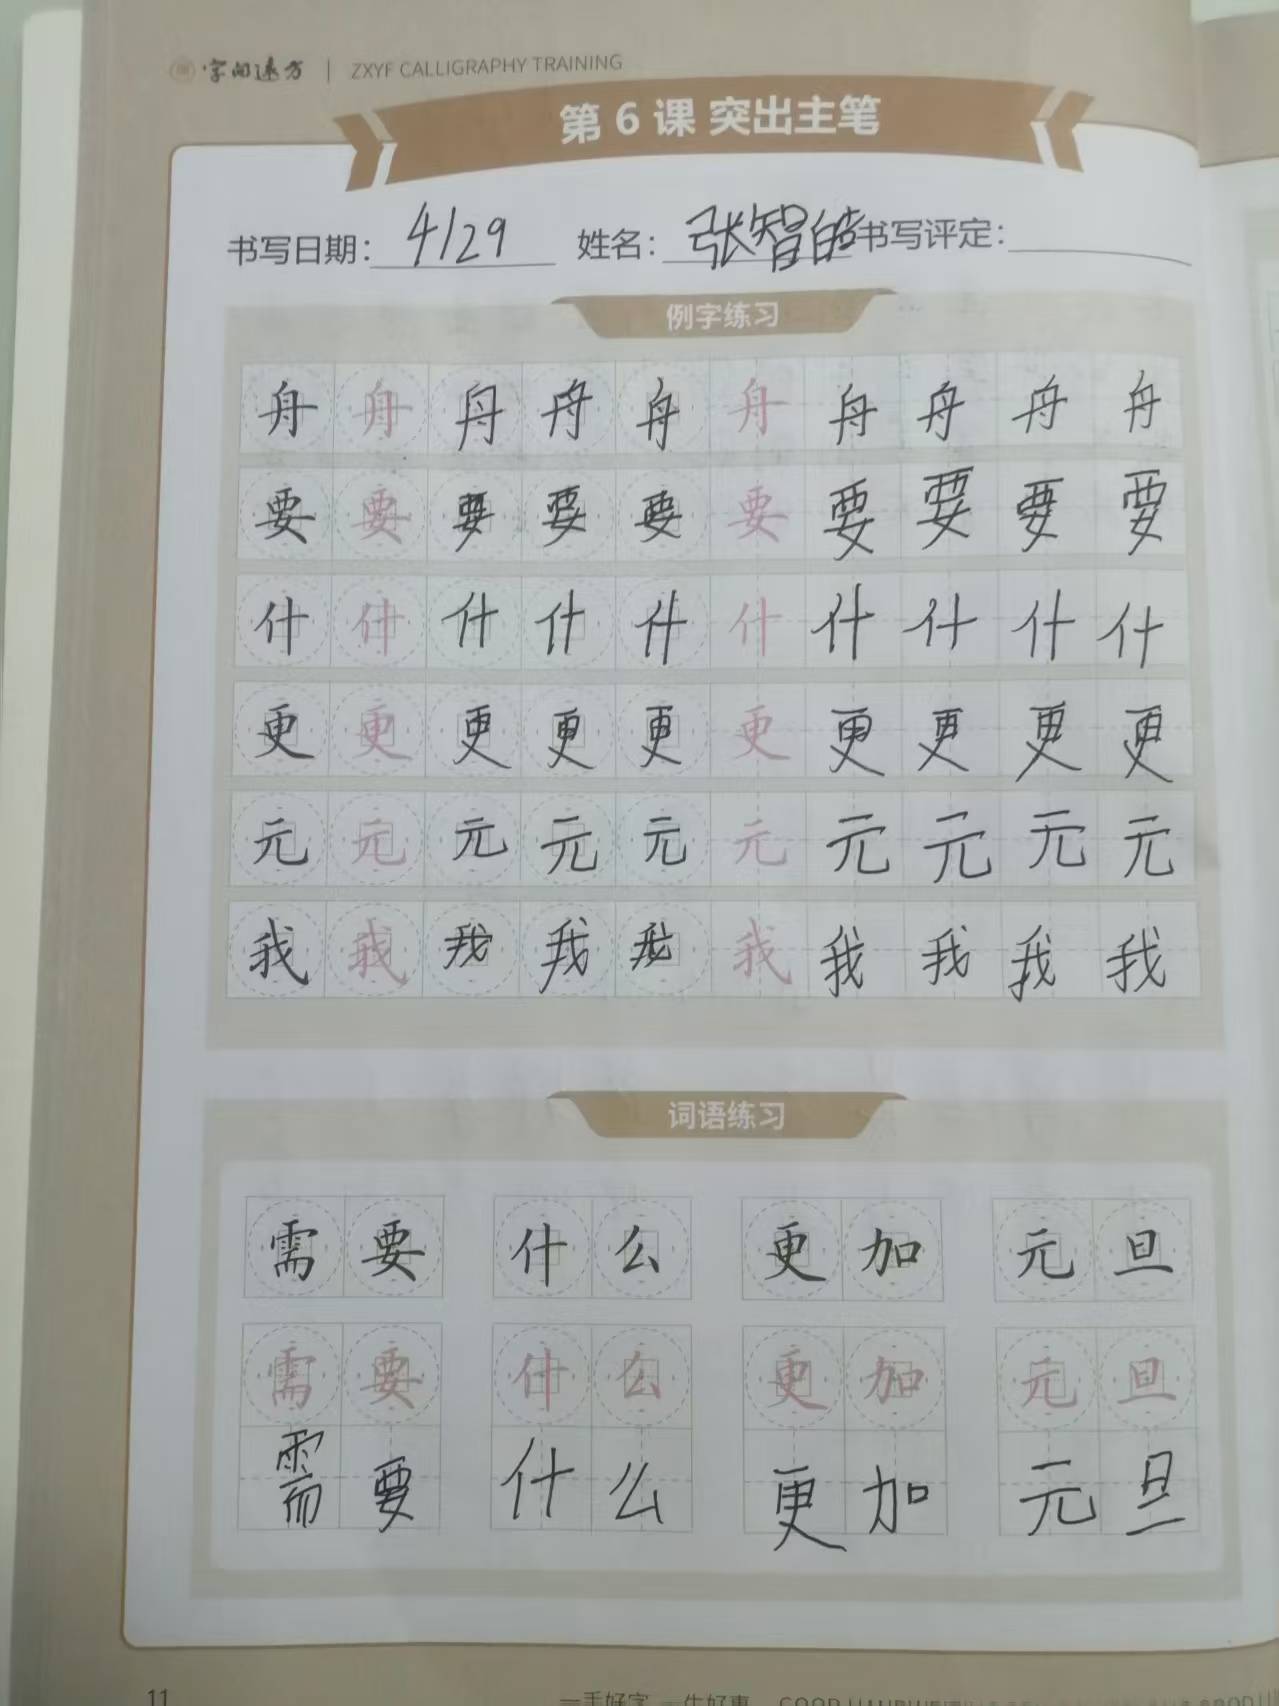 字向远方 | ZXYF CALLIGRAPHY TRAINING
第 6 课 突出主笔
书写日期: 4/29 姓名: 张智皓 书写评定:
例字练习
舟 舟 舟 舟 舟 舟 舟 舟 舟 舟
要 要 要 要 要 要 要 要 要 要
什 什 什 什 什 什 什 什 什 什
更 更 更 更 更 更 更 更 更 更
元 元 元 元 元 元 元 元 元 元
我 我 我 我 我 我 我 我 我 我
词语练习
需要 什么 更加 元旦
需要 什么 更加 元旦
需要 什么 更加 元旦
11
一手好字 一生好事